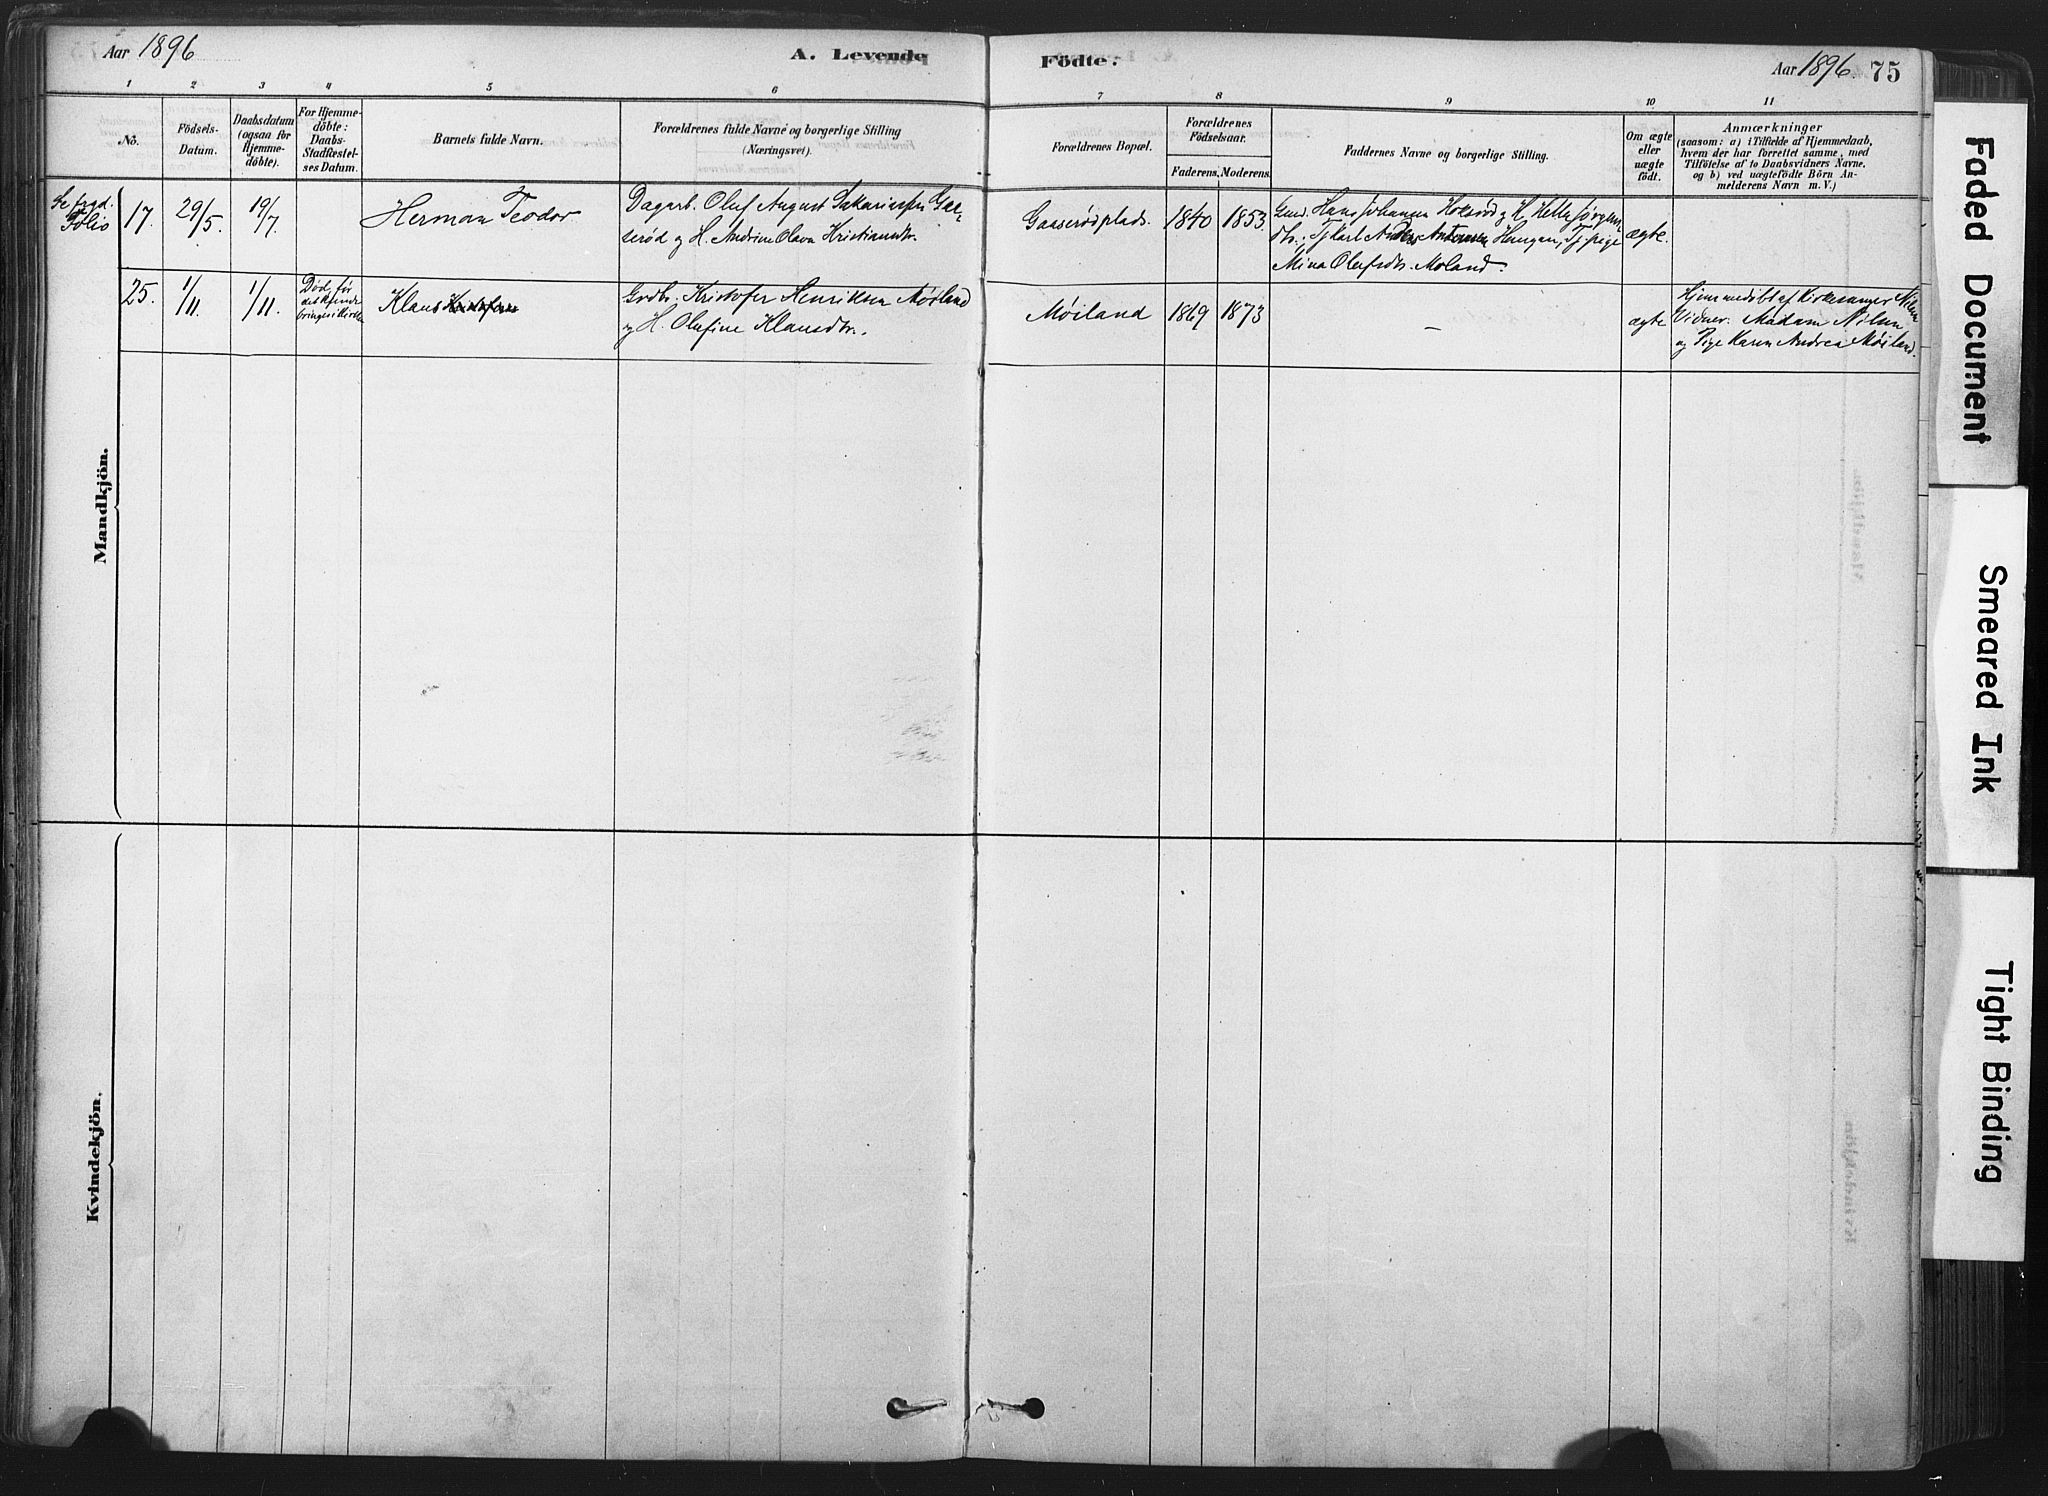 Aar 1896
A. Levende
Födte.
Aar 1896.
75
1 2 3 4 5 6 7 8 9 10 11
No.
Födsels-
Datum.
Daabsdatum
(ogsaa for
Hjemme-
döbte).
For Hjemme-
döbte:
Daabs-
Stadfæstel-
ses Datum.
Barnets fulde Navn.
Forældrenes fulde Navne og borgerlige Stilling
(Næringsvei).
Forældrenes Bopæl.
Forældrenes
Födselsaar.
Faderens. Moderens.
Faddernes Navne og borgerlige Stilling.
Om ægte
eller
uægte
födt.
Anmærkninger
(saasom: a) i Tilfælde af Hjemmedaab,
hvem der har forrettet samme, med
Tilföielse af to Daabsvidners Navne.
og b) ved uægtefödte Börn An-
melderens Navn m. V.)
Mandkjön.
Folio
17.
29/5.
19/7
Herman Teodor
Dagarb. Oluf August Sakariassen Gaa-
serød og H. Andrine Olava Kristiansdtr.
Gaaserødplads.
1840
1853
Hans Johansen Holsrød og H. Helle Jørgens-
dtr., Tj. Karl Anders Antonsen Haugan, Tj. pige
Mina Olufsdtr. Moland.
ægte.
25.
1/11
1/11.
Død før
det kunde
bringes i Kirken
Klaus Kristofer
Grdbr. Kristofer Henriksen Møiland
og H. Olufine Klausdtr.
Møiland
1869
1873
–
ægte
Hjemmedøbt af Kirkesanger Nilsen
Vidner: Madam Nilsen
og Pige Karen Andrea Møiland.
Kvindekjön.
Faded Document
Smeared Ink
Tight Binding